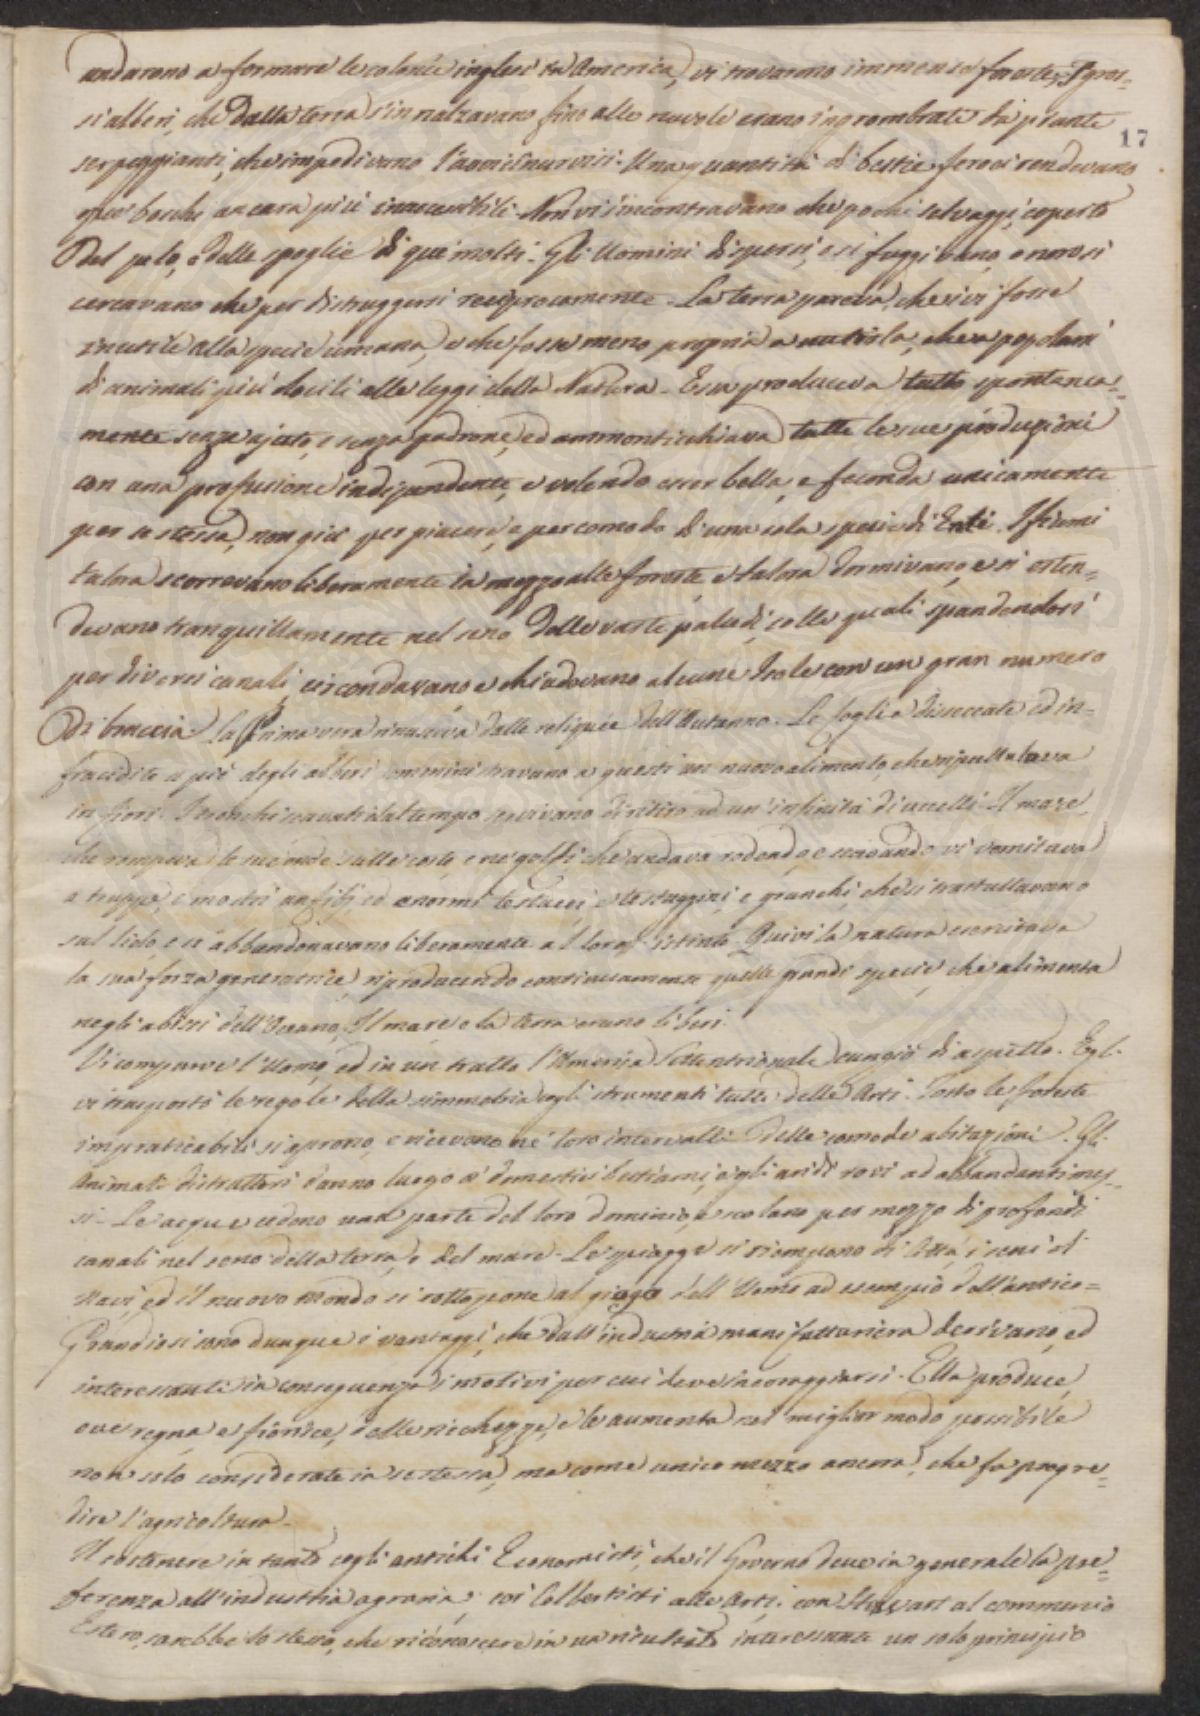 andarono a formare le colonie inglesi in America, vi trovarono immense foreste. I gros=
si alberi, che dalla terra s'innalzavano fino alle nuvole erano ingrombrate da piante
17
serpeggianti, che impedivano l'avvicinarvisi. Una quantità di bestie feroci rendevano
que' boschi ancora più inaccessibili. Non vi s'incontravano che pochi selvaggi, coperti
del pelo, e delle spoglie di que' mostri. Gli Uomini dispersi, o si fuggivano, o non si
cercavano che per distruggersi reciprocamente. La terra pareva, che ivi fosse
inutile alla specie umana, e che fosse meno propria a nutrirla, che a popolarsi
di animali più docili alle leggi della Natura. Essa produceva tutto spontanea=
mente senza ajuto, e senza padrone, ed ammonticchiava tutte le sue produzioni
con una profusione indipendente, e volendo esser bella, e feconda unicamente
per se stessa, non già per piacere, e per comodo d'una sola specie di Enti. I fiumi
talora scorrevano liberamente in mezzo alle foreste, e talora dormivano, e si esten=
devano tranquillamente nel seno delle vaste paludi, colle quali spandendosi
per diversi canali, circondavano e chiudevano alcune Isole con un gran numero
di braccia. La Primavera rinasceva dalle reliquie dell'Autunno. Le foglie disseccate ed in=
fracidite a piè degli alberi somministravano a questi un nuovo alimento, che ripullulava
in fiori. I tronchi scavati dal tempo servivano di ritiro ad un'infinità di uccelli. Il mare,
che rompeva le sue onde sulle coste, e ne' golfi che andava rodendo, e scavando vi vomitava
a truppe, i mostri anfibj, ed enormi testacei, e testuggini, e granchi, che si trastullavano
sul lido, e si abbandonavano liberamente al loro istinto. Quivi la natura esercitava
la sua forza generatrice, riproducendo continuamente quelle grandi specie, che alimenta
negli abissi dell'Oceano. Il mare, e la terra erano liberi.
Vi comparve l'Uomo, ed in un tratto l'America Settentrionale cangiò di aspetto. Egli
vi trasportò le regole della simmetria cogli strumenti tutti delle Arti. Tosto le foreste
impraticabili si aprono, e ricevono ne' loro intervalli delle comode abitazioni. Gli
Animali distruttori danno luogo a' domestici bestiami, e gli aridi rovi ad abbondanti mes=
si. Le acque cedono una parte del loro dominio, e scolano per mezzo di profondi
canali nel seno della terra, o del mare. Le spiagge si riempono di Città, i seni di
Navi, ed il nuovo mondo si sottopone al giogo dell'Uomo ad esempio dell'antico=
Grandiosi sono dunque i vantaggi, che dall'industria manifatturiera derivano, ed
interessanti in conseguenza i motivi per cui deve incoraggiarsi. Ella produce,
ove regna e fiorisce, delle ricchezze, e le aumenta nel miglior modo possibile
non solo considerate in se stessa, ma come unico mezzo ancora, che fa progre=
dire l'agricoltura.
Il sostenere in tanto cogli antichi Economisti, che il Governo deve in generale la pre=
ferenza all'industria agraria; coi Colbertisti alle Arti; con Stewart al commercio
Estero, sarebbe lo stesso, che riconoscere in un risultato interessante un solo principio